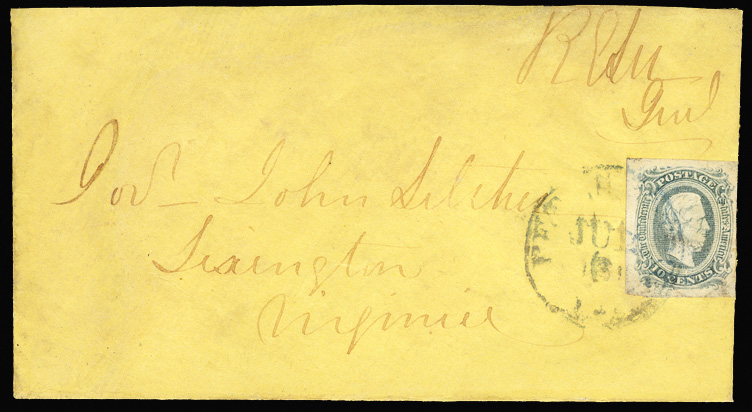 R E Lee
Genl
Govr John Letcher
Lexington
Virginia
JUL
POSTAGE
The Confederate States America
TEN CENTS